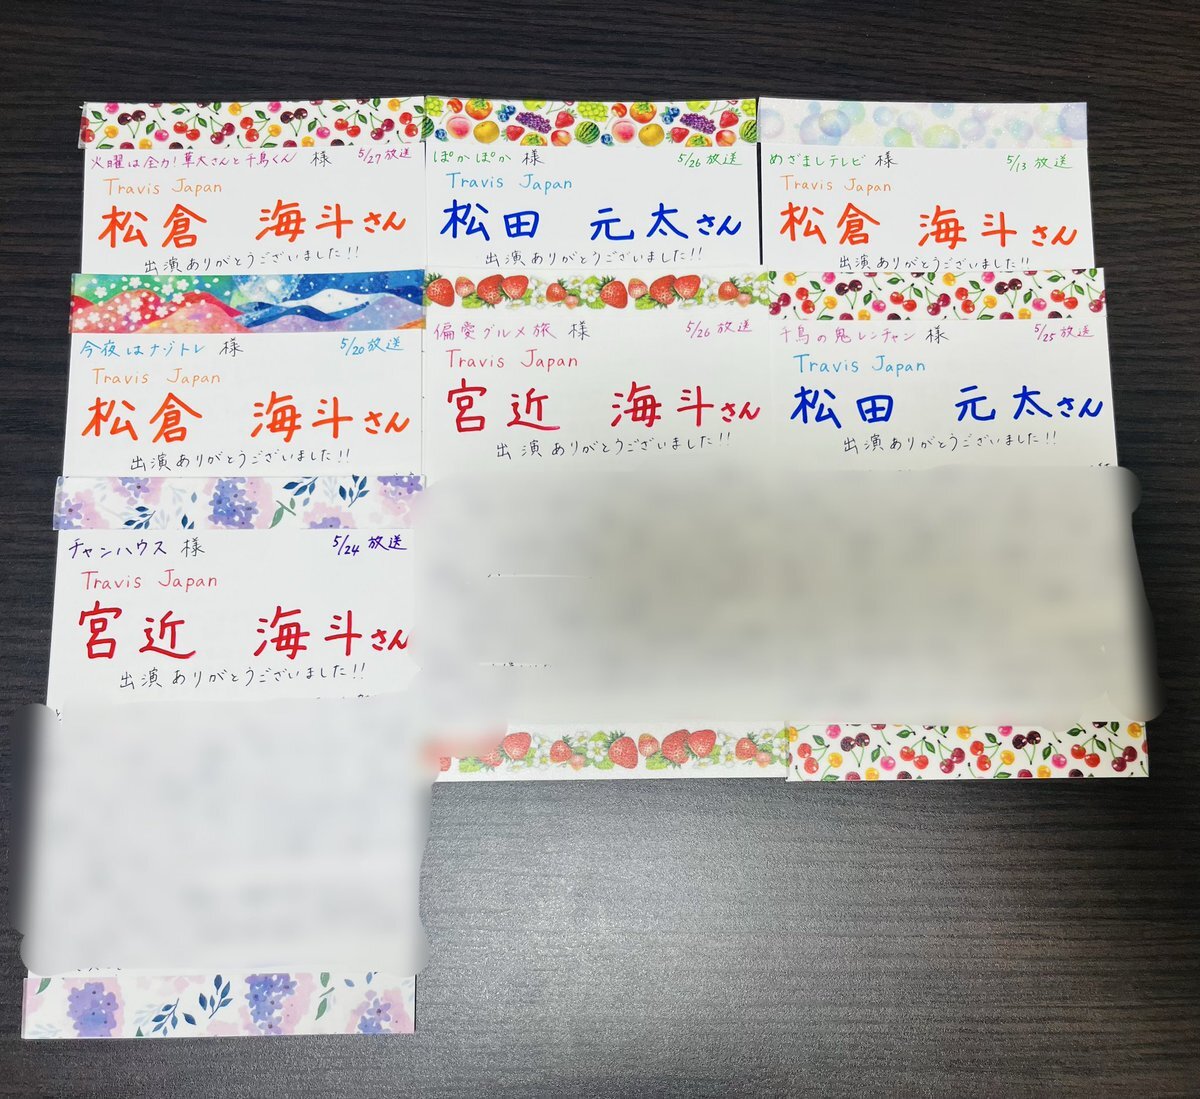 火曜は全力!華大さんと千鳥くん 様 5/27 放送
Travis Japan
松倉 海斗さん
出演ありがとうございました!!
ぽかぽか 様 5/26 放送
Travis Japan
松田 元太さん
出演ありがとうございました!!
めざましテレビ 様 5/13 放送
Travis Japan
松倉 海斗さん
出演ありがとうございました!!
今夜はナゾトレ 様 5/20 放送
Travis Japan
松倉 海斗さん
出演ありがとうございました!!
偏愛グルメ旅 様 5/26 放送
Travis Japan
宮近 海斗さん
出演ありがとうございました!!
千鳥の鬼レンチャン 様 5/25 放送
Travis Japan
松田 元太さん
出演ありがとうございました!!
チャンハウス 様 5/24 放送
Travis Japan
宮近 海斗さん
出演ありがとうございました!!